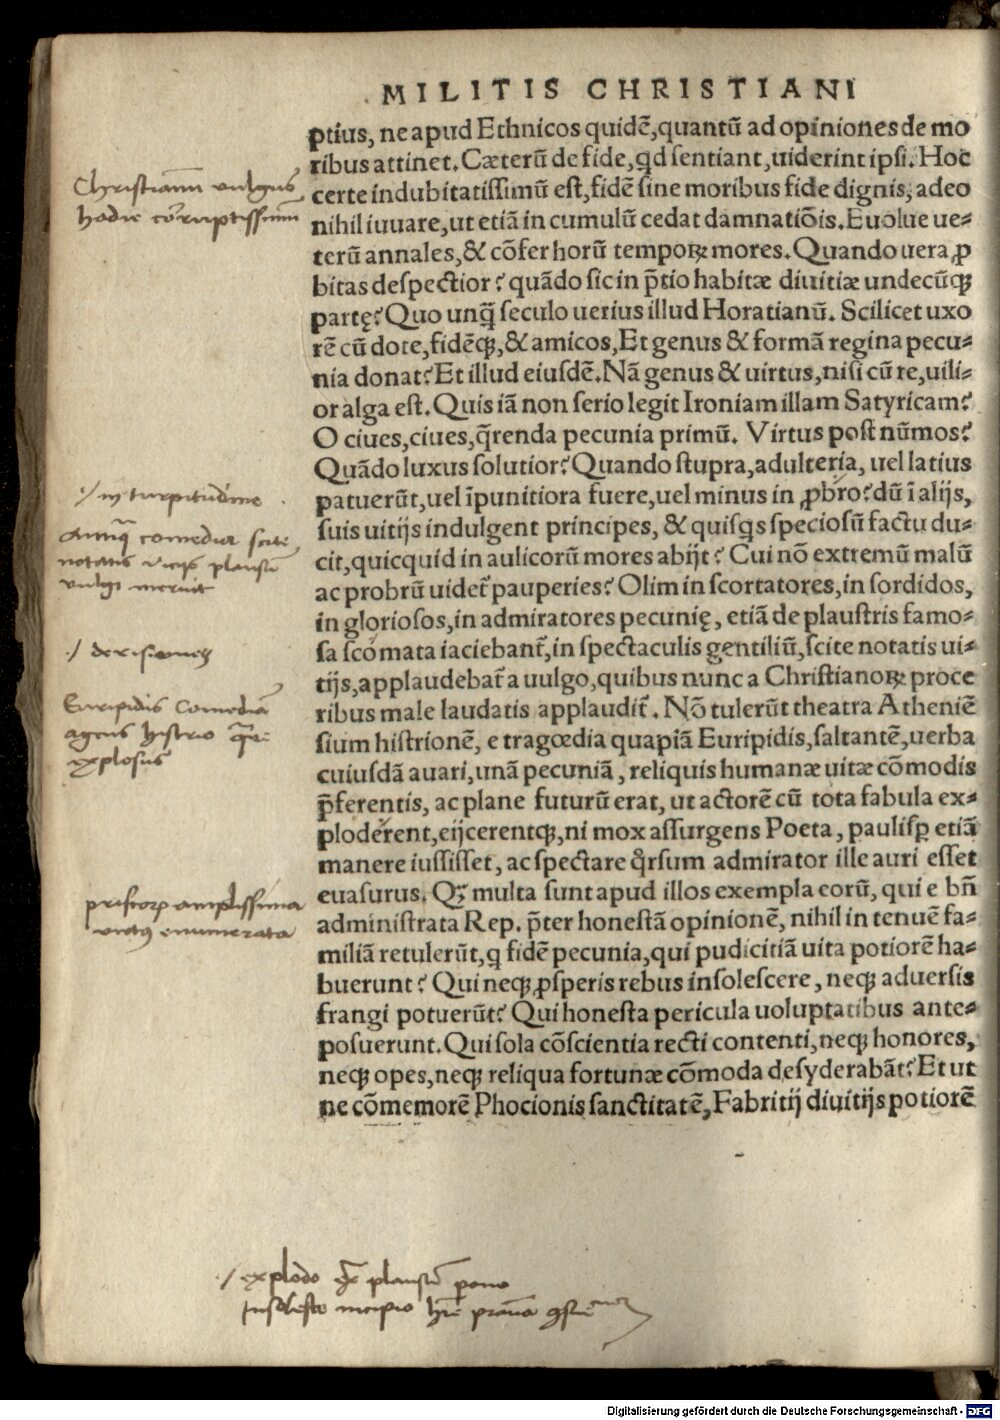 MILITIS CHRISTIANI
ptius, ne apud Ethnicos quidẽ, quantũ ad opiniones de mo
ribus attinet. Cæterũ de fide, qd sentiant, uiderint ipsi. Hoc
certe indubitatissimũ est, fidẽ sine moribus fide dignis, adeo
nihil iuuare, ut etiã in cumulũ cedat damnatiõis. Euolue ue⸗
terũ annales, & cõfer horũ tempoꝝ mores. Quando uera ꝓ
bitas despectior? quãdo sic in p̃tio habitæ diuitiæ undecũqꝫ
partę? Quo unq̃ seculo uerius illud Horatianũ. Scilicet uxo
rẽ cũ dote, fidẽqꝫ, & amicos, Et genus & formã regina pecu⸗
nia donat? Et illud eiusdẽ. Nã genus & uirtus, nisi cũ re, uili⸗
or alga est. Quis iã non serio legit Ironiam illam Satyricam?
O ciues, ciues, q̃renda pecunia primũ. Virtus post nũmos?
Quãdo luxus solutior? Quando stupra, adulteria, uel latius
patuerũt, uel ĩpunitiora fuere, uel minus in ꝓbro? dũ ĩ alijs,
suis uitijs indulgent principes, & quisq̃s speciosũ factu du⸗
cit, quicquid in aulicorũ mores abijt? Cui nõ extremũ malũ
ac probrũ uidet̃ pauperies? Olim in scortatores, in sordidos,
in gloriosos, in admiratores pecunię, etiã de plaustris famo⸗
sa scomata iaciebant̃, in spectaculis gentiliũ, scite notatis ui⸗
tijs, applaudebat̃ a uulgo, quibus nunc a Christianoꝝ proce
ribus male laudatis applaudit̃. Nõ tulerũt theatra Atheniẽ
sium histrionẽ, e tragœdia quapiã Euripidis, saltantẽ, uerba
cuiusdã auari, unã pecuniã, reliquis humanæ uitæ cõmodis
p̃ferentis, ac plane futurũ erat, ut actorẽ cũ tota fabula ex⸗
ploderent, eijcerentqꝫ, ni mox assurgens Poeta, paulisꝑ etiã
manere iussisset, ac spectare q̊rsum admirator ille auri esset
euasurus. Qꝫ multa sunt apud illos exempla eorũ, qui e bñ
administrata Rep. p̃ter honestã opinionẽ, nihil in tenuẽ fa⸗
miliã retulerũt, q fidẽ pecunia, qui pudicitiã uita potiorẽ ha⸗
buerunt? Qui neqꝫ ꝓsperis rebus insolescere, neqꝫ aduersis
frangi potuerũt? Qui honesta pericula uoluptatibus ante⸗
posuerunt. Qui sola cõscientia recti contenti, neqꝫ honores,
neqꝫ opes, neqꝫ reliqua fortunæ cõmoda desyderabãt? Et ut
ne cõmemorẽ Phocionis sanctitatẽ, Fabritij diuitijs potiorẽ
Christianũ vulgus
hodie corruptissimũ
in turpitudine
Antiq̃ comedia scite
notatis vicijs plausũ
vulgi meruit
derisiones
Euripidis Comediã
agens histrio
explosus
priscoꝝ amplissima
virtꝰ enumerata
explodo plausũ
Insolesco incipio
Digitalisierung gefördert durch die Deutsche Forschungsgemeinschaft - DFG